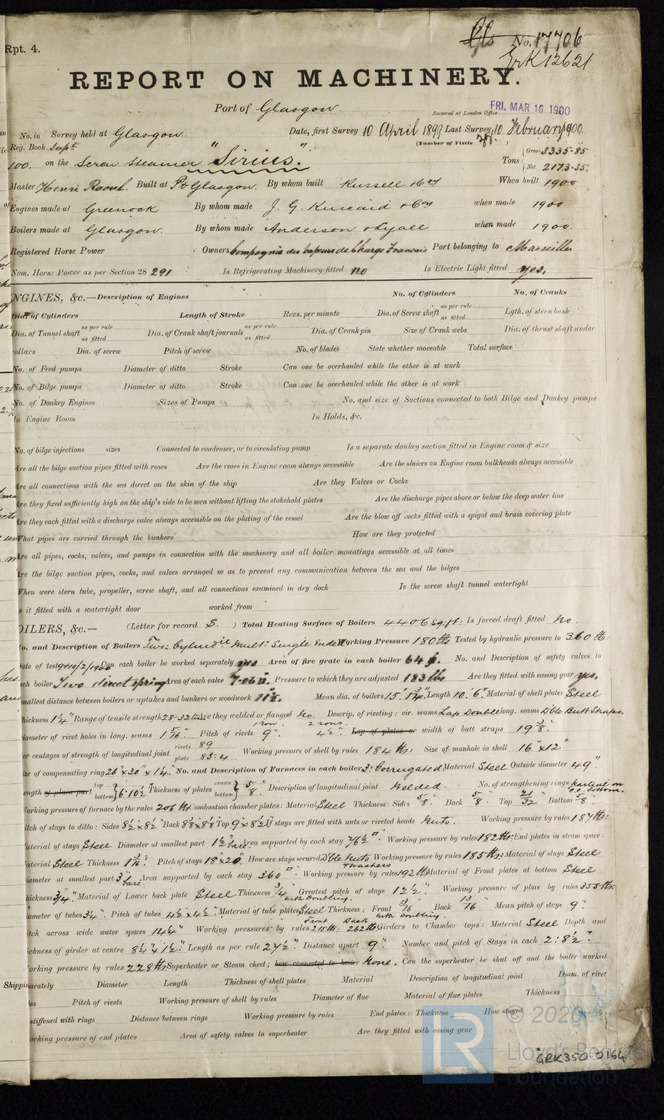 Rpt. 4.
No. 17706
Grk 12621
REPORT ON MACHINERY.
Port of Glasgow
Received at London Office FRI. MAR 16 1900
No. in Survey held at Glasgow Date, first Survey 10 April 1899 Last Survey 10 February 1900
Reg. Book. Supt (Number of Visits
100. on the Screw Steamer "Sirius." Tons Gross 3335.85 Net 2173.35
Master Henri Raoul. Built at Pt Glasgow. By whom built Russell & Coy When built 1900
Engines made at Greenock By whom made J. G. Kincaid & Coy when made 1900
Boilers made at Glasgow. By whom made Anderson & Lyall when made 1900.
Registered Horse Power Owners Compagnie des Vapeurs de Charge Francais Port belonging to Marseilles
Nom. Horse Power as per Section 28 291 Is Refrigerating Machinery fitted no Is Electric Light fitted yes.
NGINES, &c.—Description of Engines No. of Cylinders No. of Cranks
Dia. of Cylinders Length of Stroke Revs. per minute Dia. of Screw shaft as per rule as fitted Lgth. of stern bush
Dia. of Tunnel shaft as per rule as fitted Dia. of Crank shaft journals as per rule as fitted Dia. of Crank pin Size of Crank webs Dia. of thrust shaft under
collars Dia. of screw Pitch of screw No. of blades State whether moveable Total surface
No. of Feed pumps Diameter of ditto Stroke Can one be overhauled while the other is at work
No. of Bilge pumps Diameter of ditto Stroke Can one be overhauled while the other is at work
No. of Donkey Engines Sizes of Pumps No. and size of Suctions connected to both Bilge and Donkey pumps
In Engine Room In Holds, &c.
No. of bilge injections sizes Connected to condenser, or to circulating pump Is a separate donkey suction fitted in Engine room & size
Are all the bilge suction pipes fitted with roses Are the roses in Engine room always accessible Are the sluices on Engine room bulkheads always accessible
Are all connections with the sea direct on the skin of the ship Are they Valves or Cocks
Are they fixed sufficiently high on the ship's side to be seen without lifting the stokehold plates Are the discharge pipes above or below the deep water line
Are they each fitted with a discharge valve always accessible on the plating of the vessel Are the blow off cocks fitted with a spigot and brass covering plate
What pipes are carried through the bunkers How are they protected
Are all pipes, cocks, valves, and pumps in connection with the machinery and all boiler mountings accessible at all times
Are the bilge suction pipes, cocks, and valves arranged so as to prevent any communication between the sea and the bilges
When were stern tube, propeller, screw shaft, and all connections examined in dry dock Is the screw shaft tunnel watertight
Is it fitted with a watertight door worked from
OILERS, &c.— (Letter for record S.) Total Heating Surface of Boilers 4406 sq. ft. Is forced draft fitted No.
No. and Description of Boilers Two: Cylindl Multl Single Ended Working Pressure 180 lb Tested by hydraulic pressure to 360 lb
Date of test each boiler be worked separately yes Area of fire grate in each boiler 64 No. and Description of safety valves to
each boiler Two direct spring Area of each valve 7.06 Pressure to which they are adjusted 183 lbs Are they fitted with easing gear yes,
Smallest distance between boilers or uptakes and bunkers or woodwork Mean dia. of boilers Length 10.6" Material of shell plates Steel
thickness 1¼" Range of tensile strength 28-32 tons Are they welded or flanged No. Descrip. of riveting: cir. seams Lap Double long. seams Dble Butt Straps.
Diameter of rivet holes in long. seams 1 5/16 Pitch of rivets 9" Lap of plates or width of butt straps 19 3/8"
Per centages of strength of longitudinal joint rivets 89 plate 85.4 Working pressure of shell by rules 184 lb: Size of manhole in shell 16" x 12"
Size of compensating ring 26" x 30" x 1¼" No. and Description of Furnaces in each boiler 3: Corrugated Material Steel Outside diameter 49"
Length of plain part top bottom Thickness of plates crown bottom 5/8" Description of longitudinal joint Welded. No. of strengthening rings
Working pressure of furnace by the rules 206 lb Combustion chamber plates: Material Steel Thickness: Sides 5/8" Back 5/8" Top 21/32" Bottom
Pitch of stays to ditto: Sides 8½ x 8½ Back 8¼ x 8¼ Top If stays are fitted with nuts or riveted heads Nuts. Working pressure by rules 187 lb:
Material of stays Steel Diameter at smallest part 1½" Area supported by each stay Working pressure by rules 182 lb: End plates in steam space:
Material Steel Thickness Pitch of stays 18" x 20" How are stays secured Dble Nuts & Washers Working pressure by rules 185 lb: Material of stays Steel
Diameter at smallest part Area supported by each stay 360" Working pressure by rules 192 lb Material of Front plates at bottom Steel
thickness ¾" Material of Lower back plate Steel Thickness ¾" Greatest pitch of stays 12½" Working pressure of plate by rules 355 lb:
Diameter of tubes 3¼" Pitch of tubes 4½ x 4½" Material of tube plates Steel Thickness: Front Back 13/16" Mean pitch of stays 9"
Pitch across wide water spaces 14¼" Working pressures by rules Front Back 262 lb Girders to Chamber tops: Material Steel Depth and
thickness of girder at centre 8¼" 1½" Length as per rule 27½" Distance apart 9" Number and pitch of Stays in each 2: 8½".
Working pressure by rules 228 lb Superheater or Steam chest; how connected to boiler None. Can the superheater be shut off and the boiler worked
separately Diameter Length Thickness of shell plates Material Description of longitudinal joint Diam. of rivet
Pitch of rivets Working pressure of shell by rules Diameter of flue Material of flue plates Thickness
stiffened with rings Distance between rings Working pressure by rules End plates: Thickness How stayed
Working pressure of end plates Area of safety valves to superheater Are they fitted with easing gear
Shipping
© 2020
LR
Lloyd's Register
Foundation
GRK350 0164